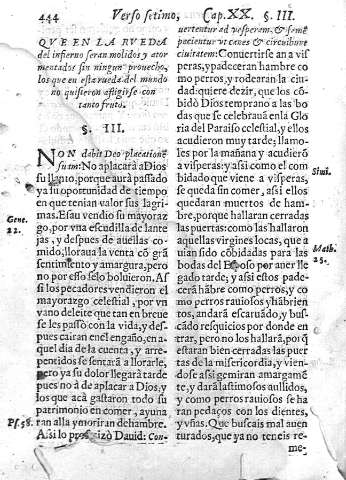 444 Verso setimo, Cap. XX. §. III.
QUE EN LA RUEDA
del infierno seran molidos y ator
mentados sin ningun prouecho,
los que en esta rueda del mundo
no quisieron afligirse con
tanto fruto.
§. III.
NON dabit Deo placationē
suam: No aplacará a Dios
su llanto, porque aurà passado
ya su oportunidad de tiempo
en que tenian valor sus lagri-
mas. Esau vendio su mayoraz
go, por vna escudilla de lante
jas, y despues de auellas co-
mido, lloraua la venta cō grā
sentimiento y amargura, pero
no por esso se lo boluieron. Así
si los pecadores vendieron el
mayorazgo celestial, por vn
vano deleite que tan en breue
se les passò con la vida, y des-
pues cairan en el engaño, en a-
quel dia de la cuenta, y arre-
pentidos se sentarà a llorarle,
pero ya su dolor llegarà tarde
pues no à de aplacar a Dios, y
los que acà gastaron todo su
patrimonio en comer, ayuna
ran alla y moriran de hambre.
Assi lo profetizò Dauid: Con-
Gene.
22.
Ps. 58.
uertentur ad vesperam, & famē
pacientur vt canes & circuibunt
ciuitatem: Conuertirse an a vis
peras, y padeceran hambre co
mo perros, y rodearan la ciu-
dad: quiere dezir, que los cō-
bidò Dios temprano a las bo-
das que se celebrauā en la Glo
ria del Paraiso celestial, y ellos
acudieron muy tarde; llamo-
les por la mañana y acudierō
a visperas: y assi como el com
bidado que viene a visperas,
se queda sin comer, assi ellos
quedaran muertos de ham-
bre, porque hallaran cerradas
las puertas: como las hallaron
aquellas virgines locas, que a-
uian sido cōbidadas para las
bodas del Esposo por auer lle
gado tarde; y assi estos pade-
cerà hàbre como perros, y co
mo perros rauiosos y hàbrien
tos, andarà escaruādo, y bus-
cādo resquicios por donde en
trar, pero no los hallarà, por q̄
estaran bien cerradas las puer
tas de la misericordia, y vien-
dose assi gemiran amargamē
te, y darà lastimosos aullidos,
y como perros rauiosos se ha
ran pedaços con los dientes,
y vñas. Que buscais mal auen
turados, que ya no teneis re-
me-
Simi.
Math.
25.